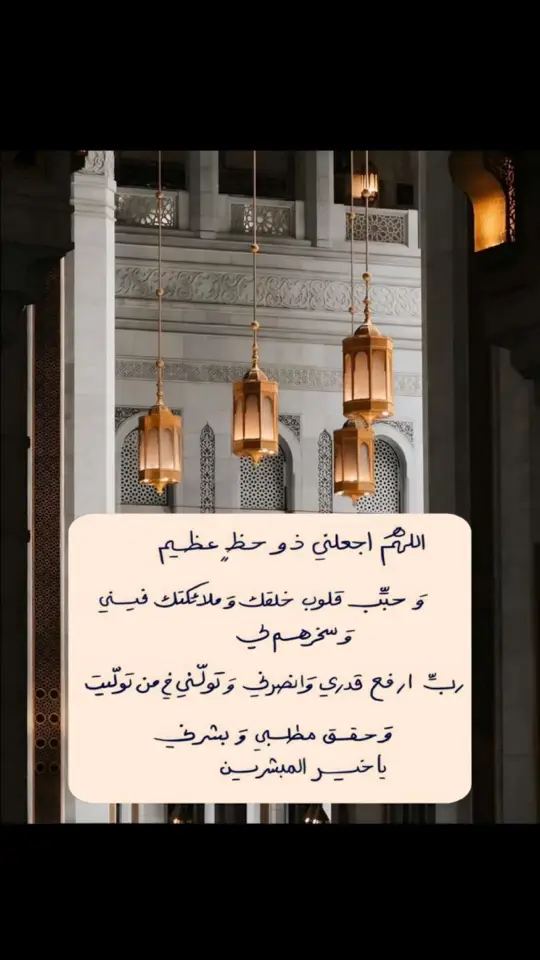 اللهم اجعلني ذو حظٍ عظيم
وَ حبِّب قلوب خلقك وَ ملائكتك فيني
وَ سخرهم لي
ربِّ ارفع قدري وَانصرني وَ تولّني في من تولّيت
وَ حقق مطلبي وَ بشرني
يا خير المبشرين